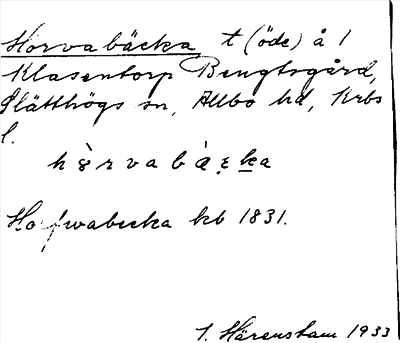 Horvabäcka t (öde) å 1
Klasentorp Bengtsgård,
Slätthögs sn, Allbo hd, Krbs
l.
Horfwabecka kb 1831.
I. Härenstam 1933